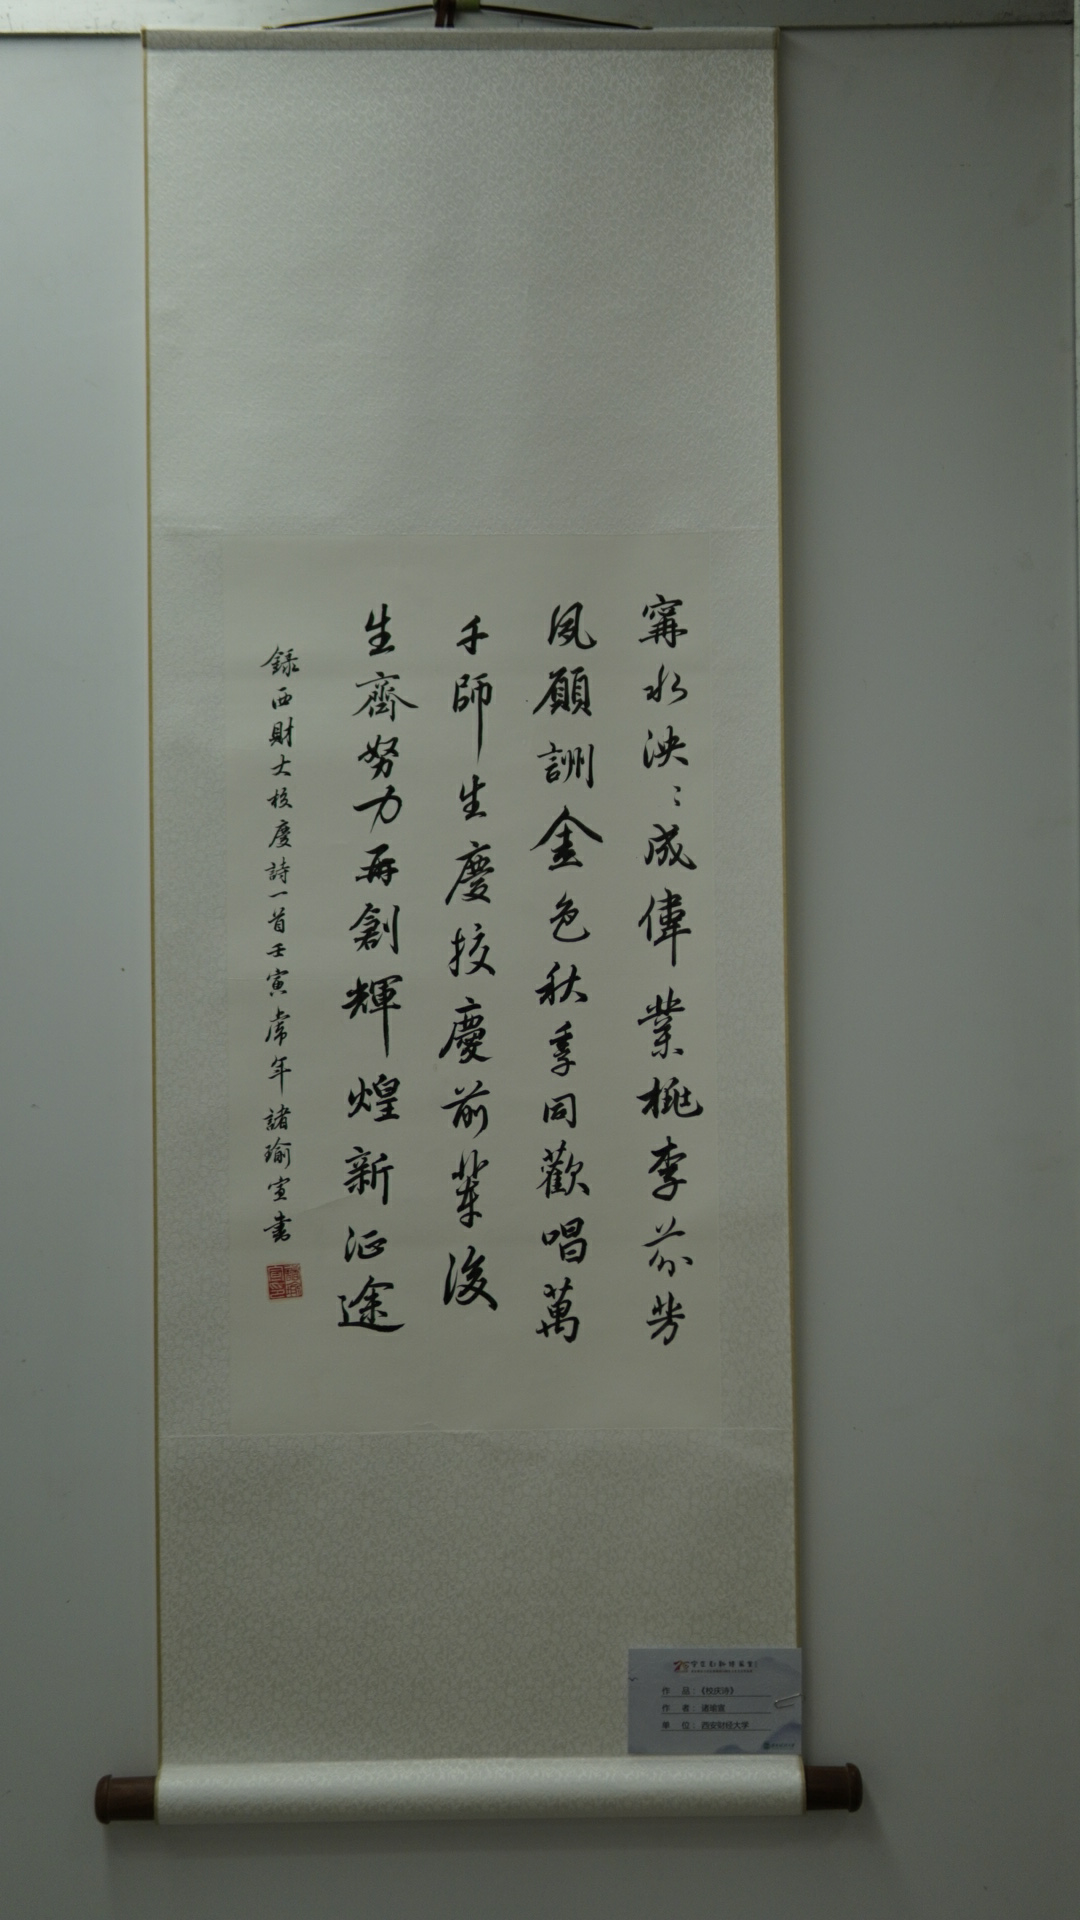 寗水泱〻成偉業桃李芬芳
夙願詶金色秋季同歡唱萬
千師生慶校慶前輩後
生齊努力再創輝煌新征途
録西財大校慶詩一首壬寅常年諸瑜宣書
作 品：《校庆诗》
作 者：诸瑜宣
单 位：西安财经大学